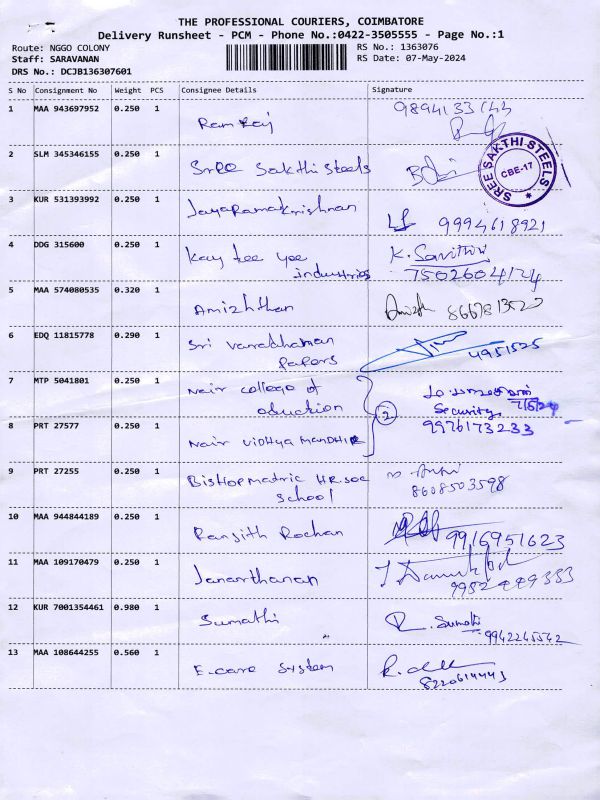 THE PROFESSIONAL COURIERS, COIMBATORE
Delivery Runsheet - PCM - Phone No.:0422-3505555 - Page No.:1
Route: NGGO COLONY
RS No.: 1363076
Staff: SARAVANAN
RS Date: 07-May-2024
DRS No.: DCJB136307601
S No Consignment No Weight PCS Consignee Details Signature
1 MAA 943697952 0.250 1
Ram Raj
2 SLM 345346155 0.250 1
Sree Sakthi Steels
SREE SAKTHI STEELS
CBE-17
3 KUR 531393992 0.250 1
Jayaramakrishnan
9994618921
4 DDG 315600 0.250 1
Kay tee yee K. Savithri
industries 7502604124
5 MAA 574080535 0.320 1
Amizhthan
6 EDQ 11815778 0.290 1
Sri Vardhaman
papers 4951525
7 MTP 5041801 0.250 1
Nair college of
oduction Security 7/5/24
2
8 PRT 27577 0.250 1 9976173233
Nair VidHya MANDHIR
9 PRT 27255 0.250 1
Bishop matric HR.Soc
School 8608503598
10 MAA 944844189 0.250 1
Ranjith Rochan 9916951623
11 MAA 109170479 0.250 1
Jananthanan
12 KUR 7001354461 0.980 1
Sumathi R. Sumathi
9942245542
13 MAA 108644255 0.560 1
E.care System
8220614443